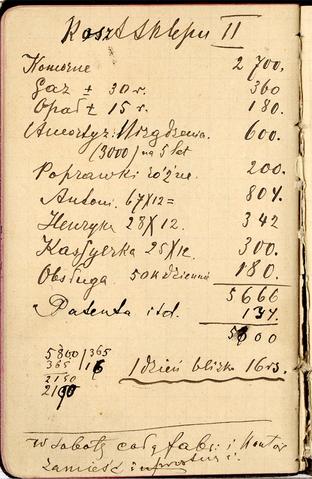 Koszt Sklepu II
Komorne 2 700.
Gaz ± 30 r. 360
Opał ± 15 r. 180.
Amortyz. Urządzenia. 600.
(3000) na 5 lat
Poprawki różne. 200.
Antoni. 67X12= 804.
Henryka 28X12. 342
Kassyerka 25X12. 300.
Obsługa. 50 K dziennie 180.
5666
Patenta itd. 134.
5800
5800/365
365/16
2150
2190
1 dzień blizko 16 rs.
w sobotę całą fabr. i Kantor
zamieść